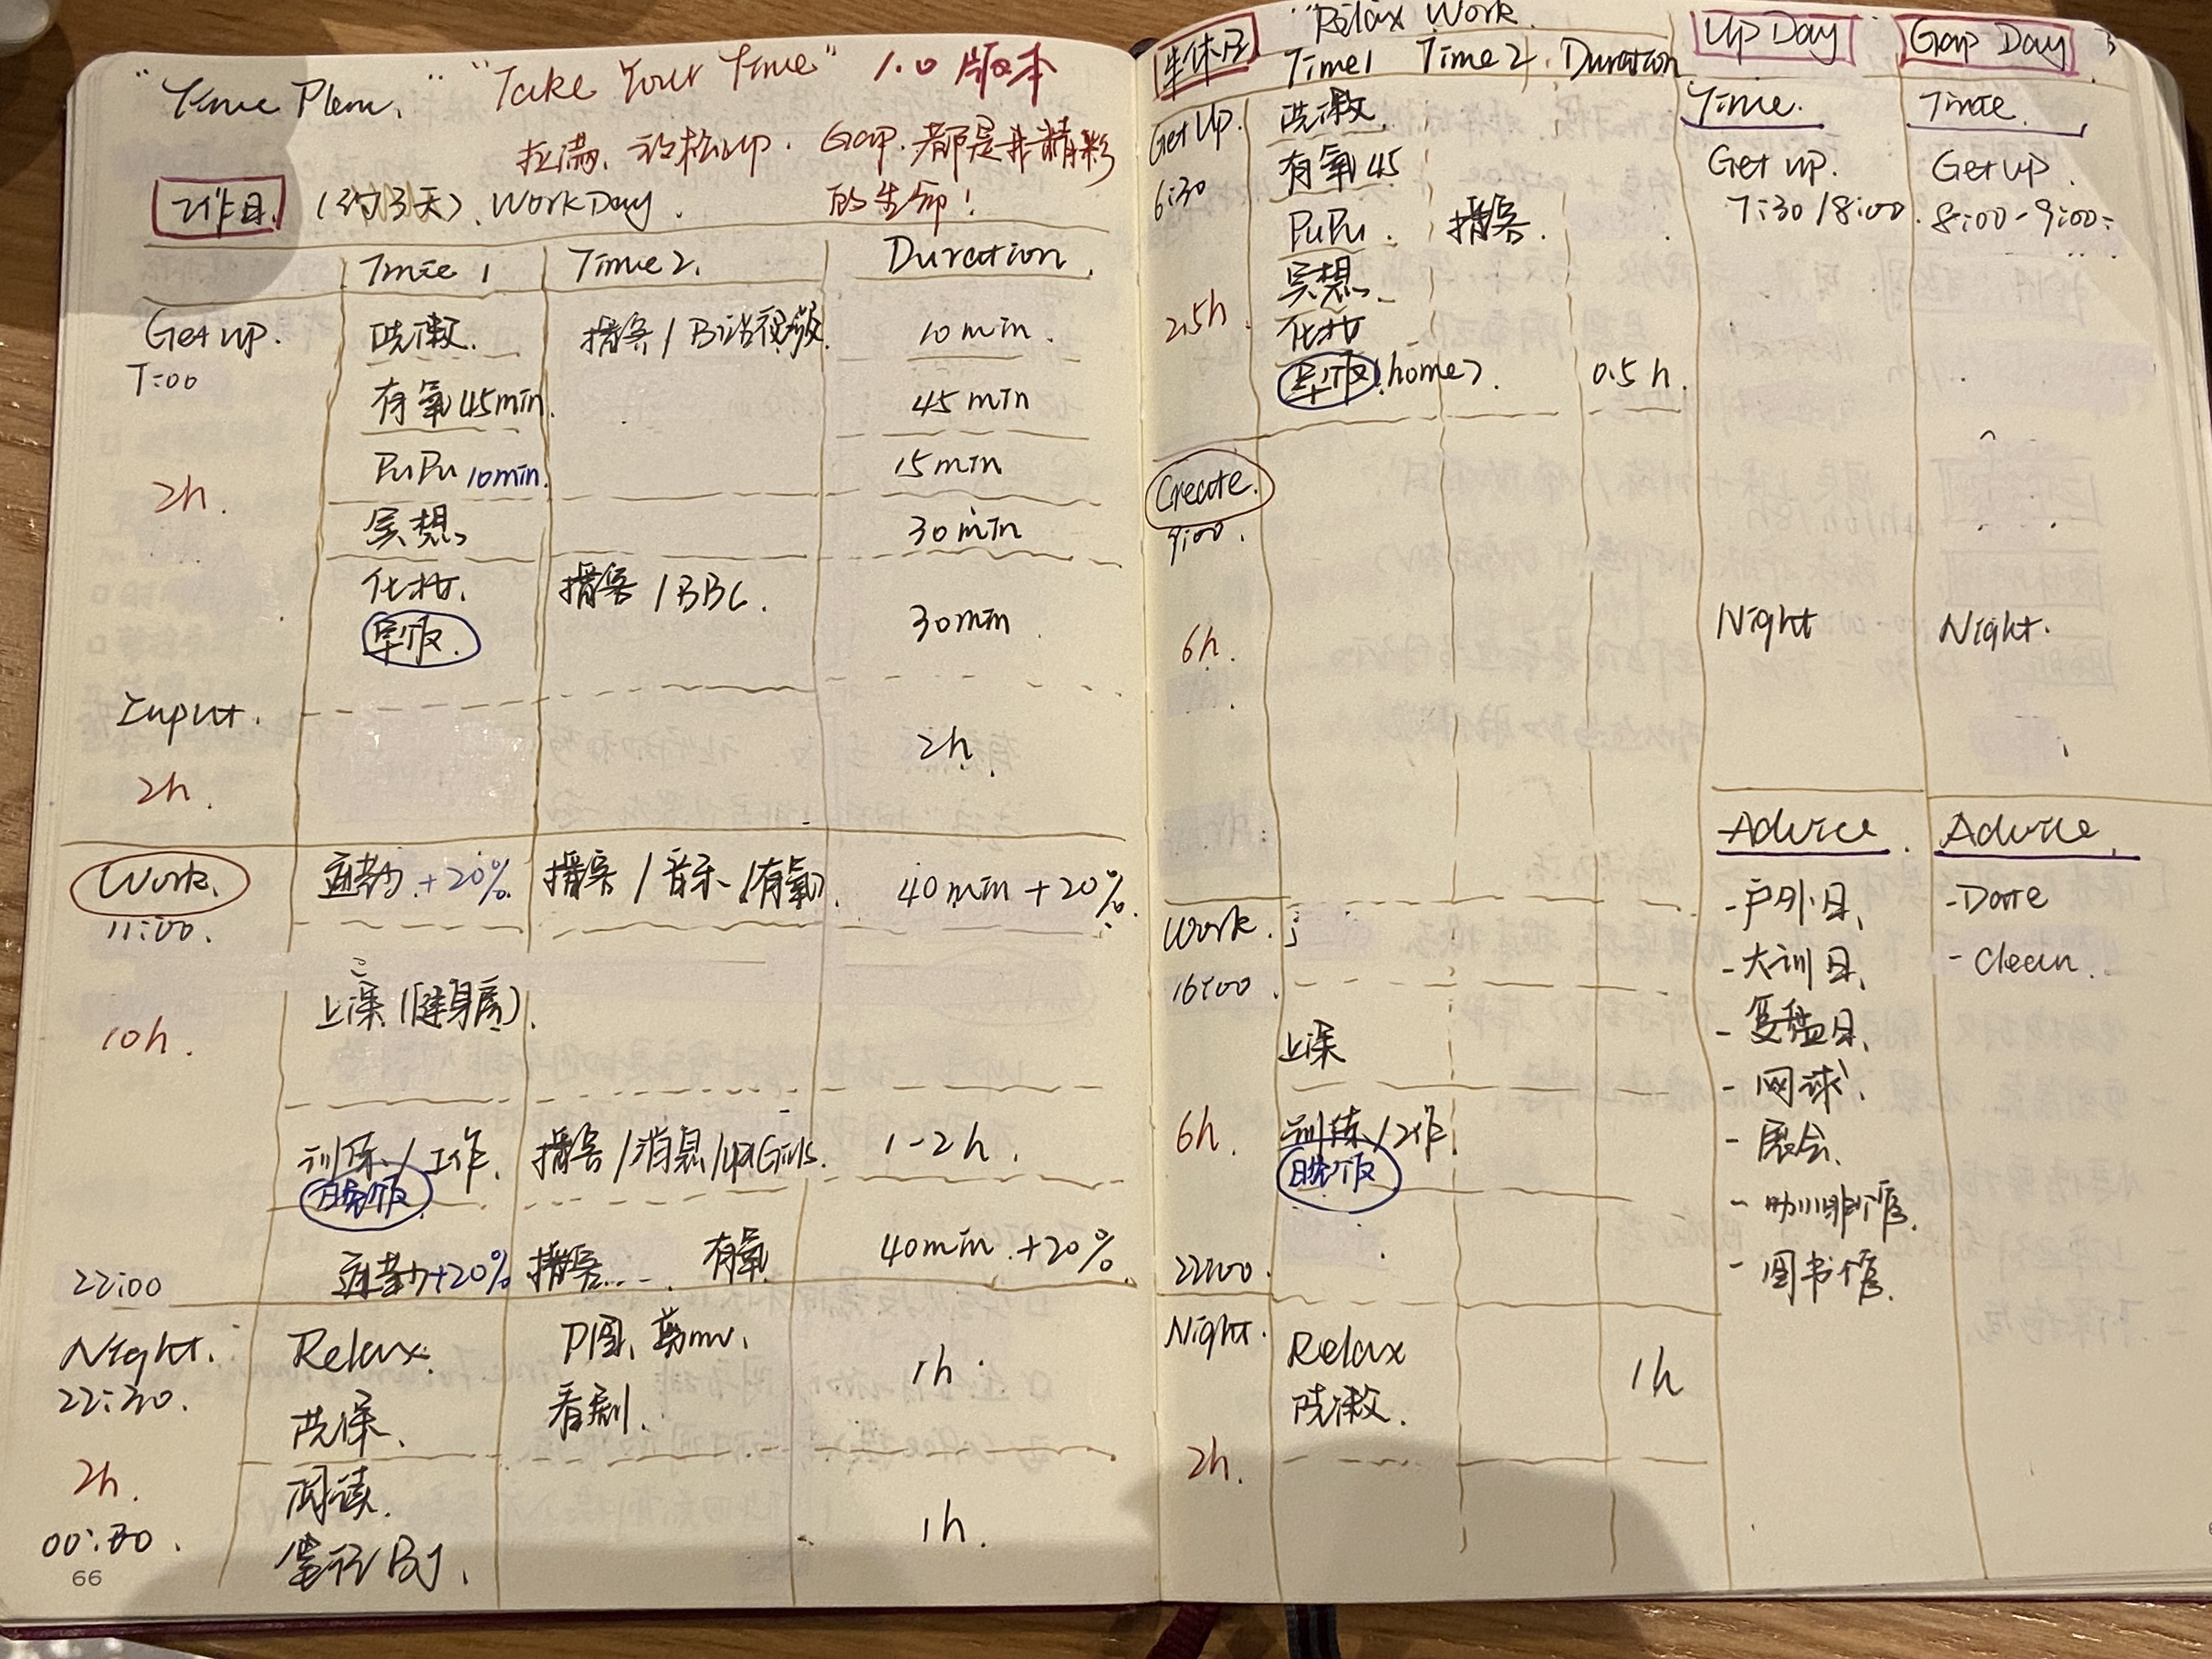 "Time Plan." "Take Your Time" 1.0 版本
拉满、放松up. Gap. 都是我精彩
的生命!
工作日 (约3天). WorkDay.
Time 1 Time 2. Duration.
Get up. 洗漱. 播客 / B站视频 10 min.
7:00
有氧 45min. 45 min
PuPu 10min. 15 min
2h.
冥想、 30 min
化妆、 播客 / BBC.
早饭. 30min.
Input.
2h.
2h.
Work. 通勤 +20% 播客 / 音乐 (有氧). 40 min + 20%.
11:00.
上课 (健身房).
10h.
训练 / 工作. 播客 / 消息 / 1-2 h.
晚饭
22:00 通勤+20% 播客.... 有氧 40min. +20%.
Night. Relax. P图、剪mv、 1h.
22:30. 洗澡、 看剧.
2h. 阅读. 1h.
00:30.
笔记/BJ.
66
半休日 "Relax Work.
Time1 Time 2. Duration
Get Up. 洗漱.
6:30 有氧 45
PuPu. 播客.
冥想、
2.5h. 化妆
早饭 (home). 0.5 h.
Create.
9:00.
6h.
Work.
16:00.
上课
6h. 训练 / 工作.
晚饭
22:00.
Night. Relax 1h
洗漱.
2h.
Up Day
Time.
Get up.
7:30 / 8:00.
Night
Advice.
- 户外日、
- 大训日、
- 复盘日、
- 网球、
- 展会、
- 咖啡馆.
- 图书馆.
Gap Day
Time.
Get up.
8:00 - 9:00.
Night.
Advice.
- Date
- Clean.